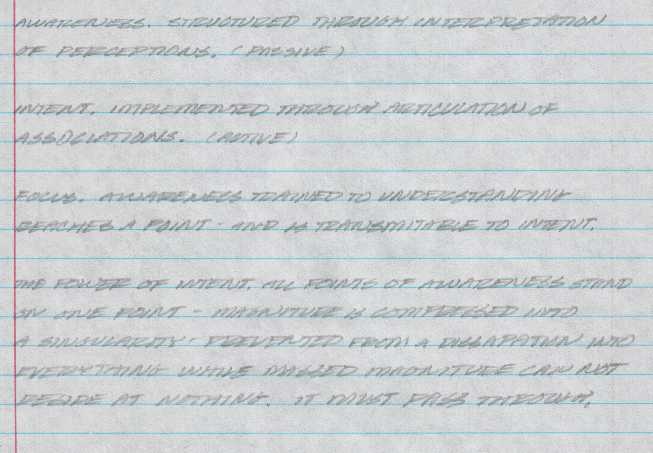 AWARENESS. STRUCTURED THROUGH INTERPRETATION
OF PERCEPTIONS. (PASSIVE)
INTENT. IMPLEMENTED THROUGH ARTICULATION OF
ASSOCIATIONS. (ACTIVE)
FOCUS. AWARENESS TRAINED TO UNDERSTANDING
REACHES A POINT - AND IS TRANSMITABLE TO INTENT.
THE POWER OF INTENT. ALL POINTS OF AWARENESS STAND
ON ONE POINT - MAGNITUDE IS COMPRESSED INTO
A SINGULARITY - PREVENTED FROM A DISSAPATION INTO
EVERYTHING WHILE MASSED MAGNITUDE CAN NOT
RESIDE AT NOTHING. IT MUST PASS THROUGH.